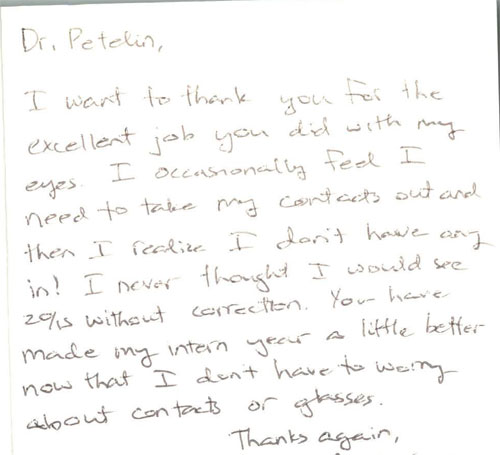 Dr. Petelin,
I want to thank you for the
excellent job you did with my
eyes. I occasionally feel I
need to take my contacts out and
then I realize I don't have any
in! I never thought I would see
20/15 without correction. You have
made my intern year a little better
now that I don't have to worry
about contacts or glasses.
Thanks again,